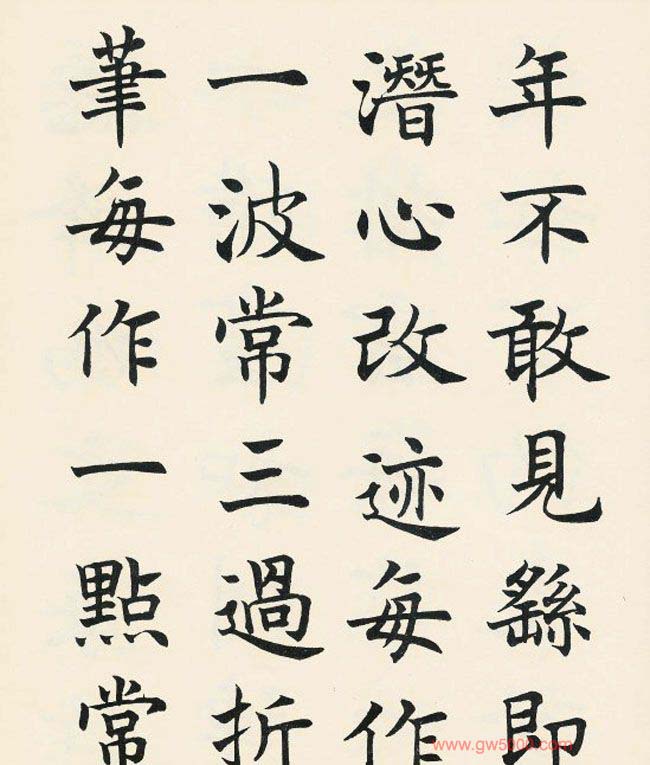 年不敢見繇即
潛心改迹每作
一波常三過折
筆每作一點常
www.gw5000.com